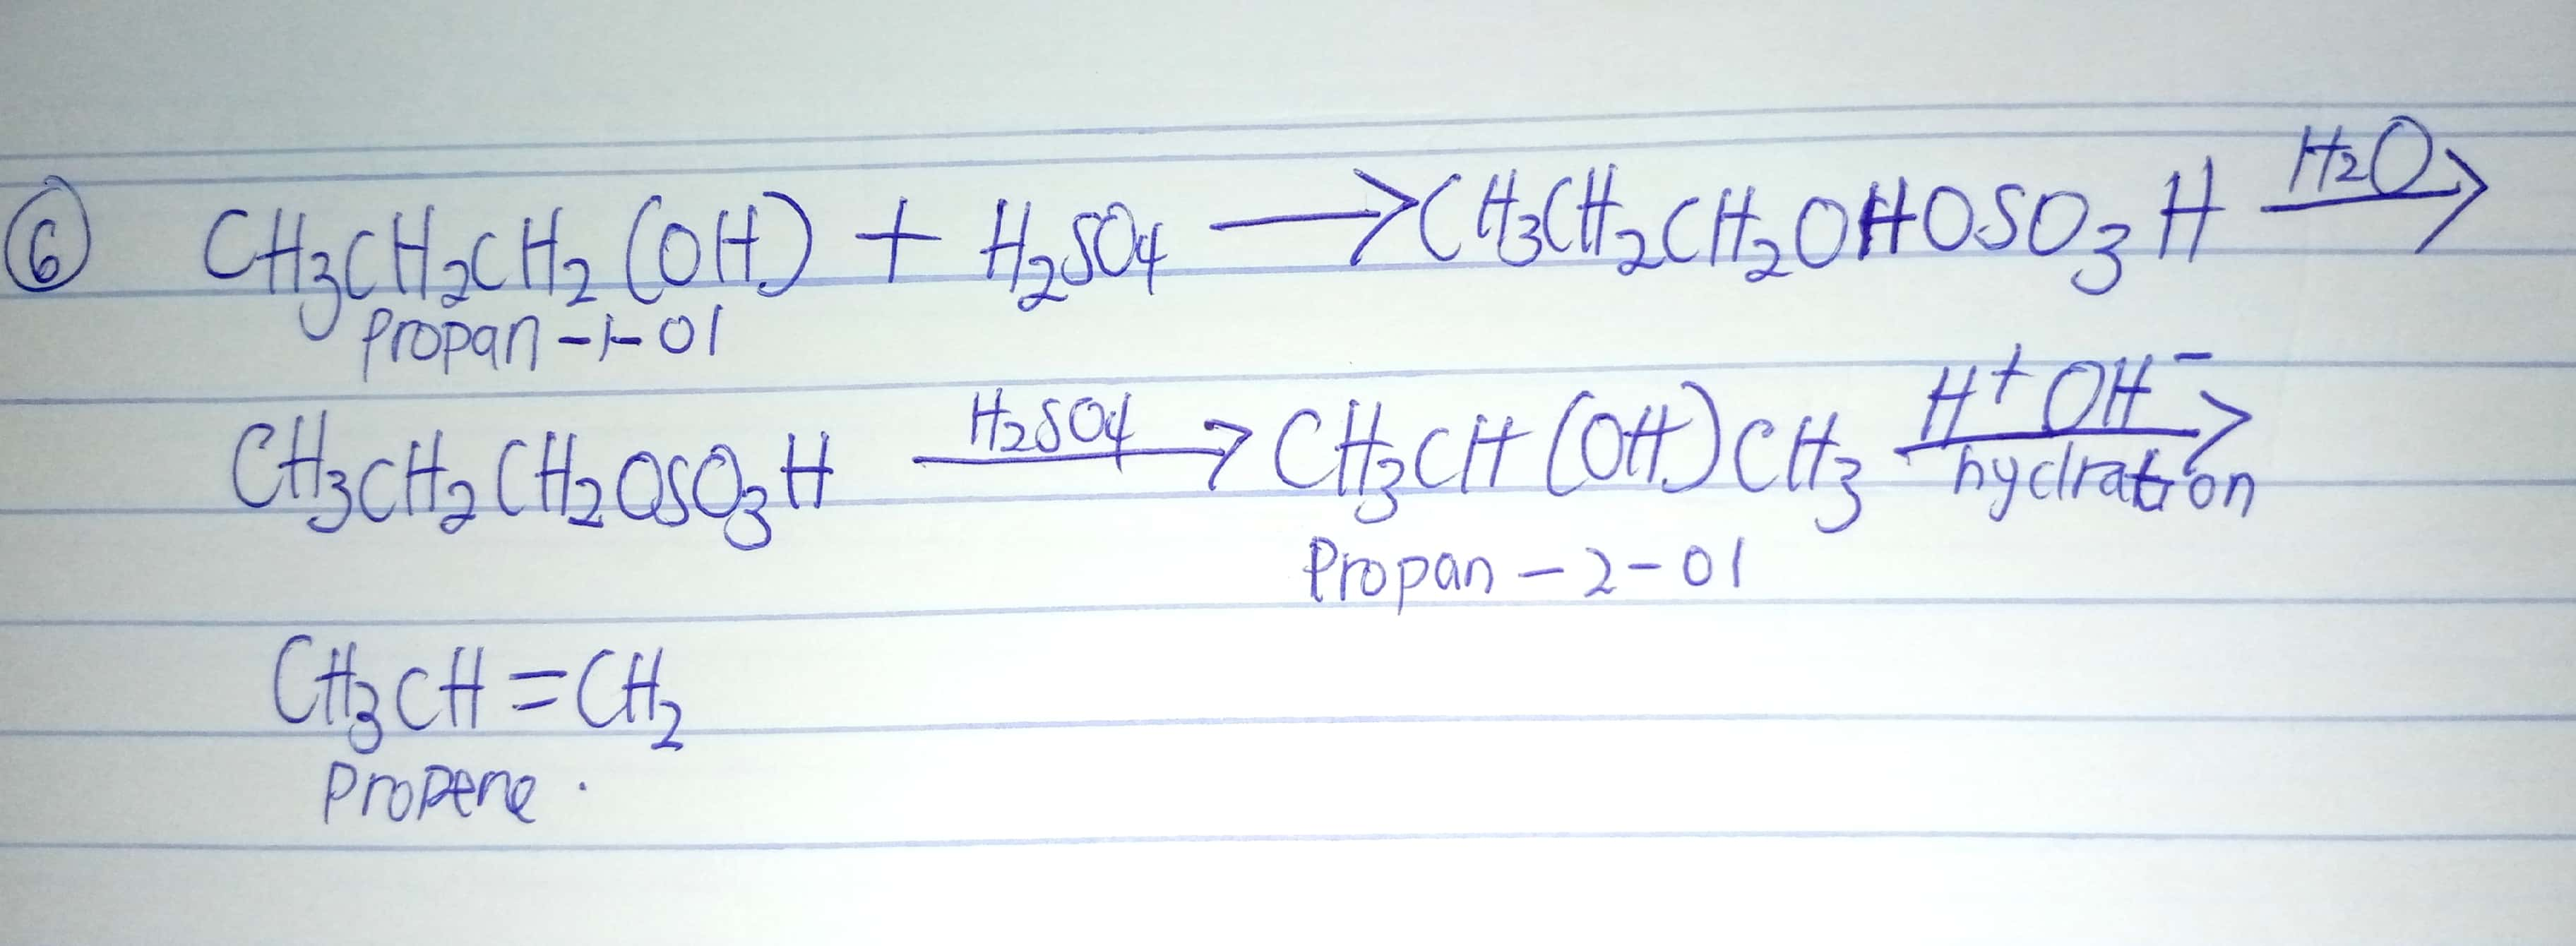 ⑥ CH₃CH₂CH₂(OH) + H₂SO₄ ⟶ CH₃CH₂CH₂OHOSO₃H H₂O⟶
Propan-1-ol
CH₃CH₂CH₂OSO₃H H₂SO₄⟶ CH₃CH(OH)CH₃ H⁺OH⁻⟶ hydration
Propan-2-ol
CH₃CH=CH₂
Propene.